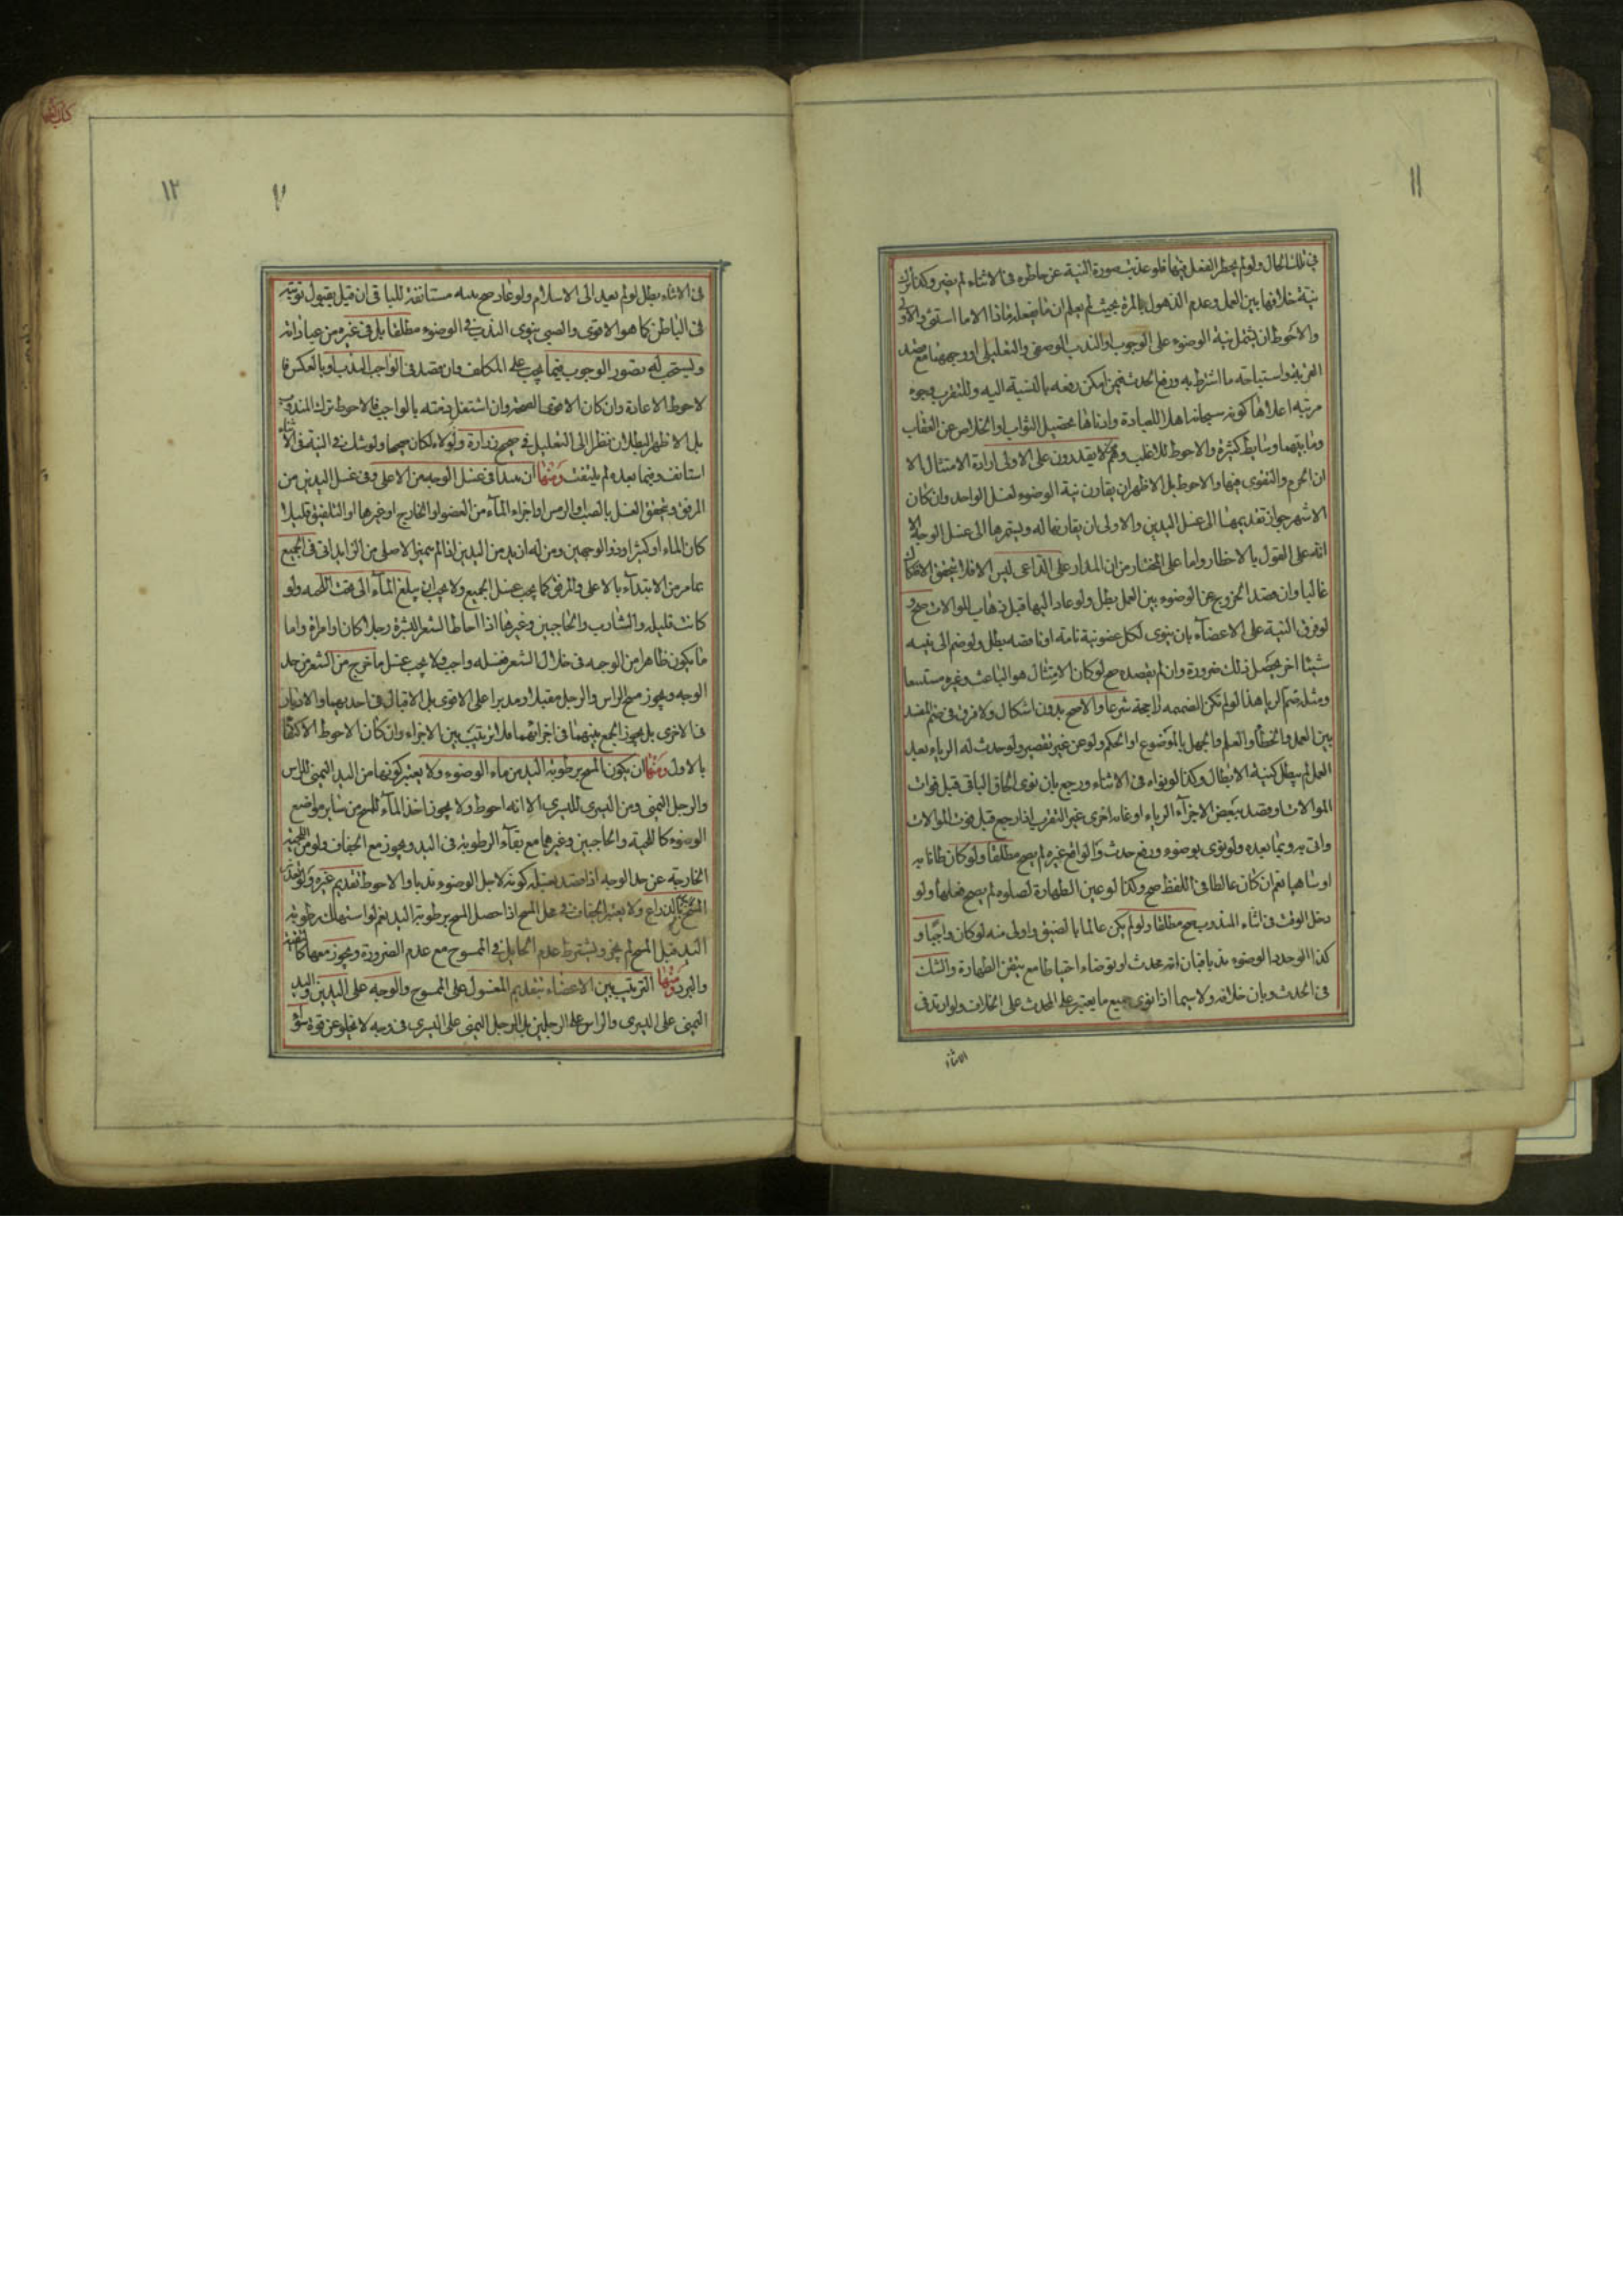 ١١
في تلك الحال ولو لم يخطر الفعل فيها فلو عذبت صورة النية عن خاطره في الاثناء لم يضر وكذا ترك
نية خلافها بين العمل وعدم الذهول بالمرة بحيث لم يعلم ان ما يفعله ماذا الا ما استثنى والاولى
والاحوط ان يشتمل نية الوضوء على الوجوب او الندب الوصفي والتعليلي او وجههما مع قصد
القربة واستباحة ما اشترط به ورفع الحدث فيمن امكن رفعه بالنسبة اليه وللتقرب وجوه
مرتبة اعلاها كونه سبحانه اهلا للعبادة وادناها تحصيل الثواب او الخلاص عن العقاب
وما بينهما وسايط كثيرة والاحوط للاغلب وهم لا يقدرون على الاولى ارادة الامتثال الا
ان الحزم والتقوى فيها والاحوط بل الاظهر ان يقارن نية الوضوء لغسل الواحد وان كان
الاشهر جواز تقديمها الى غسل اليدين والاولى ان يقارنها له ويستمرها الى غسل الوجه الا
انه على القول بالاخطار واما على المختار من ان المدار على الداعي ليس الا فلا يتحقق الانفكاك
غالبا وان قصد الخروج عن الوضوء بين العمل بطل ولو عاد اليها قبل ذهاب الموالات صح و
لو فرق النية على الاعضاء بان ينوي لكل عضو نية تامة او ناقصة بطل ولو ضم الى نيته
شيئا اخر يحصل ذلك ضرورة وان لم يقصده صح لو كان الامتثال هو الباعث وغيره مستتبعا
ومثله ضم الرياء هذا لو لم تكن الضميمة راجحة شرعا والا صح بدون اشكال ولا فرق في ضم المفسد
بين العمد والخطأ والعلم والجهل بالموضوع او الحكم ولو عن غير تقصير ولو حدث له الرياء بعد
العمل لم يبطل كنية الابطال وكذا لو نواه في الاثناء ورجع بان نوى الحاق الباقي قبل فوات
الموالات او قصد ببعض الاجزاء الرياء او غاية اخرى غير التقرب اذا رجع قبل فوت الموالات
واتى به وبما بعده ولو نوى بوضوء ورفع حدث والواقع غيره لم يصح مطلقا ولو كان ظانا به
او ساهيا نعم ان كان غالطا في اللفظ صح وكذا لو عين الطهارة لصلوة لم يصح فعلها ولو
دخل الوقت في اثناء المندوب صح مطلقا ولو لم يكن عالما بالضيق واولى منه لو كان واجبا و
كذا لو جدد الوضوء ندبا فبان انه محدث او توضاء احتياطا مع تيقن الطهارة والشك
في الحدث وبان خلافه ولا سيما اذا نوى جميع ما يعتبر على المحدث على الخلاف ولو ارتد في
الاثناء
١٢
في الاثناء بطل لو لم يعد الى الاسلام ولو عاد صح بنية مستانفة للباقي ان قيل بقبول توبته
في الباطن كما هو الاقوى والصبي ينوي الندب في الوضوء مطلقا بل في غيره من عباداته
ويستحب له تصور الوجوب فيما يجب على المكلف وان قصد في الواجب الندب او بالعكس فا
لاحوط الاعادة وان كان الاقوى الصحة وان اشتغل ذمته بالواجب فالاحوط ترك المندوب
بل الاظهر البطلان نظرا الى التعليل في صحيح زرارة ولولاه لكان صحيحا ولو شك في النية في الاثناء
استانف وفيما بعده لم يلتفت ومنها ان يبدأ في غسل الوجه من الاعلى وفي غسل اليدين من
المرفق ويتحقق الغسل بالصب والرمس او اجراء الماء من العضو او الخارج او غيرها او التلفيق قليلا
كان الماء او كثيرا وذو الوجهين ومن له ازيد من اليدين اذا لم يتميز الاصلي من الزايد اتى في الجميع
عامر من الابتداء بالاعلى والمرفق كما يجب غسل الجميع ولا يجب ان يبلغ الماء الى تحت اللحية ولو
كانت قليلة والشارب والحاجبين وغيرها اذا احاط الشعر بالبشرة رجلا كان او امراة واما
ما يكون ظاهرا من الوجه في خلال الشعر فغسله واجب ولا يجب غسل ما خرج من الشعر من حد
الوجه ويجوز مسح الراس والرجل مقبلا ومدبرا على الاقوى بل الاقبال في احديهما والادبار
في الاخرى بل يجوز الجمع بينهما في اجزائهما فلا ترتيب بين الاجزاء وان كان الاحوط الاكتفاء
بالاول ومنها ان يكون المسح برطوبة اليد من ماء الوضوء ولا يعتبر كونها من اليد اليمنى للراس
والرجل اليمنى ومن اليسرى لليسرى الا انه احوط ولا يجوز اخذ الماء للمسح من ساير مواضع
الوضوء كاللحية والحاجبين وغيرها مع بقاء الرطوبة في اليد ويجوز مع الجفاف ولو من اللحية
الخارجة عن حد الوجه اذا قصد بغسله كونه لاجل الوضوء ندبا والاحوط تقديم غيره ولو تعذر
المسح بالذراع ولا يعتبر الجفاف في محل المسح اذا حصل المسح برطوبة اليد نعم لو استهلك رطوبة
اليد قبل المسح لم يجز ويشترط عدم الحايل في الممسوح مع عدم الضرورة ويجوز معها كالتقية
والبرد ومنها الترتيب بين الاعضاء بتقديم المغسول على الممسوح والوجه على اليدين واليد
اليمنى على اليسرى والراس على الرجلين بل الرجل اليمنى على اليسرى في وجه لا يخلو عن قوة